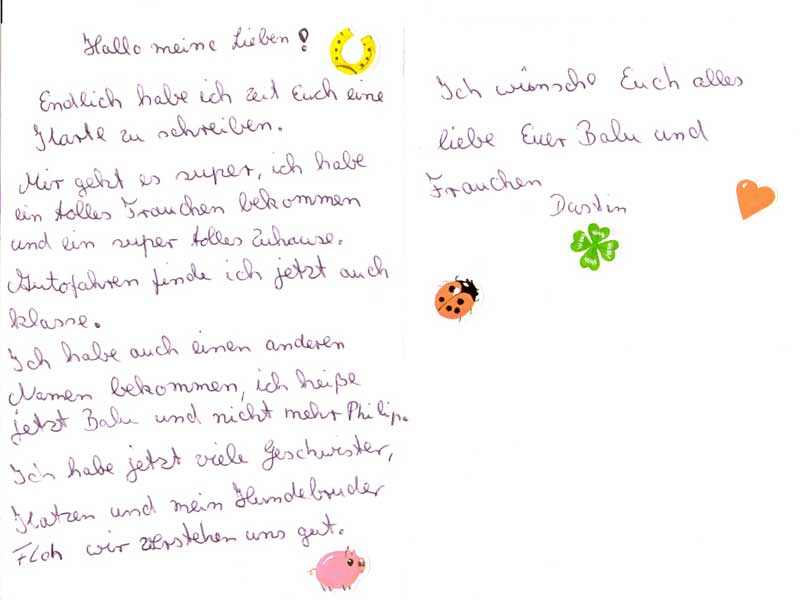 Hallo meine Lieben!
Endlich habe ich zeit Euch eine
Karte zu schreiben.
Mir geht es super, ich habe
ein tolles Frauchen bekommen
und ein super tolles Zuhause.
Autofahren finde ich jetzt auch
klasse.
Ich habe auch einen anderen
Namen bekommen, ich heiße
jetzt Balu und nicht mehr Philip.
Ich habe jetzt viele Geschwister,
Katzen und mein Hundebruder
Floh wir verstehen uns gut.
Ich wünsche Euch alles
liebe Euer Balu und
Frauchen
Dustin